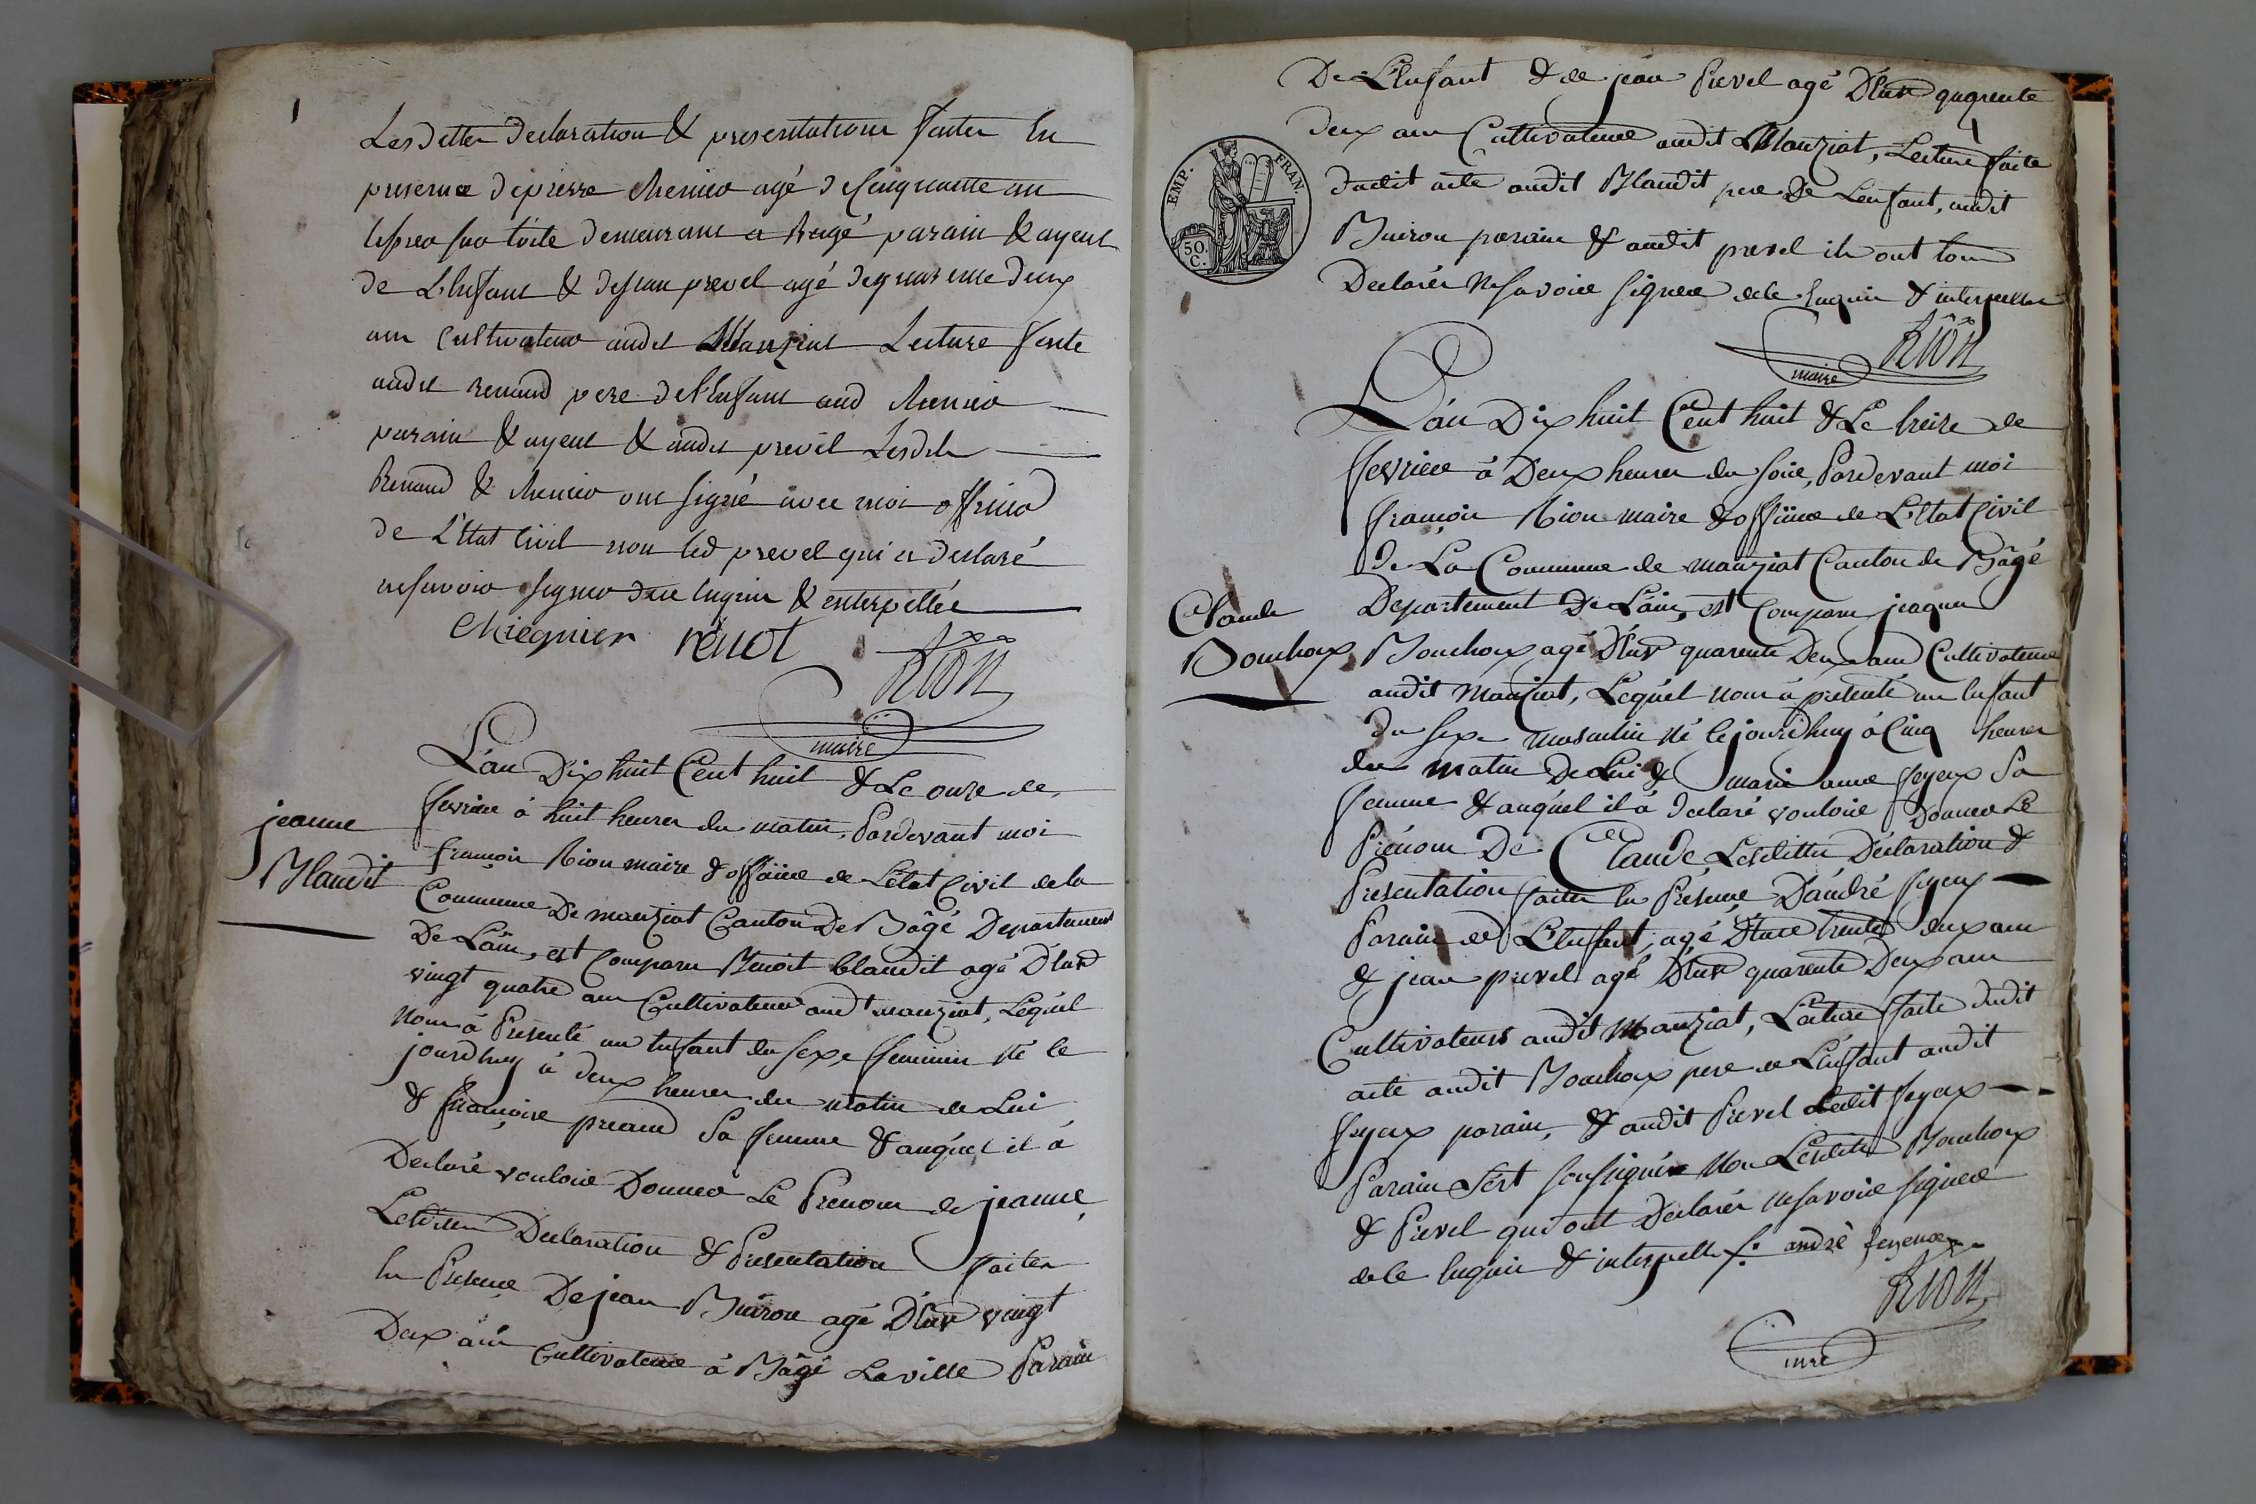 Lesdittes declaration & presentations faites En
presence de pierre chenier agé de Cinquante an
demeurant a Bagé parain & ayeul
de L'Enfant & de jean prevel agé de quarente deux
ans Cultivateur audit Manziat Lecture faite
audit renaud pere de l'Enfant aud chenier
parain & ayeul & audit prevel Lesdits
Renaud & chenier ont signé avec moi officier
de L'Etat Civil non led prevel qui a declaré
ne savoir signer de ce enquis & interpellé
renot Rion
maire
jeanne
Blaudit
L'an Dix huit Cent huit & Le onze de
fevrier à huit heures du matin, Pardevant moi
françois Rion maire & officier de L'état Civil de la
Commune De manziat Canton De Bâgé Departement
De L'ain, est Comparu Benoit blaudit agé D'Env
vingt quatre ans Cultivateur aud manziat, Lequél
nous à Présenté un Enfant du sexe feminin né le
jourdhuy à deux heures du matin de Lui
& françoise preaud Sa femme & auquel il à
Declaré vouloir Donner Le Prenom de jeanne,
Lesdittes Declaration & Presentation faites
En Présence De jean Buiron agé D'Env vingt
Deux ans Cultivateur à Bâgé La ville Parain
EMP. FRAN.
50.
C.
De L'Enfant & de jean Prevel agé D'Env quarente
deux ans Cultivateur audit Manziat, Lecture faite
dudit acte audit Blaudit pere De L'enfant, audit
Buiron parain & audit prevel ils ont tous
Declarés Ne savoir signer de ce Enquis & interpellés
Rion
maire
Claude
Bouchoux
L'an Dix huit Cent huit & Le treize de
fevrier à Deux heures du soir, Pardevant moi
françois Rion maire & officier de L'Etat Civil
De La Commune de manziat Canton de Bâgé
Departement De L'ain, est Comparu jacques
Bouchoux agé D'Env quarente Deux ans Cultivateur
audit Manziat, Lequél nous à présenté un Enfant
du sexe masculin né le jourdhuy à Cinq heures
du matin De Lui & marie anne feyeux Sa
femme & auquél il à declaré vouloir Donner Le
Prénom De Claude, Lesdittes Déclaration &
Presentation faites En Présence D'andré feyeux
Parain de L'Enfant, agé D'Env trente deux ans
& jean prevel agé D'Env quarente Deux ans
Cultivateurs audit Manziat, Lecture faite dudit
acte audit Bouchoux pere de L'enfant audit
feyeux parain, & audit Prevel Ledit feyeux
Parain S'est soussigné Non Lesdits Bouchoux
& Prevel qui ont Declarés ne savoir signer
de ce Enquis & interpellés andrè
Rion